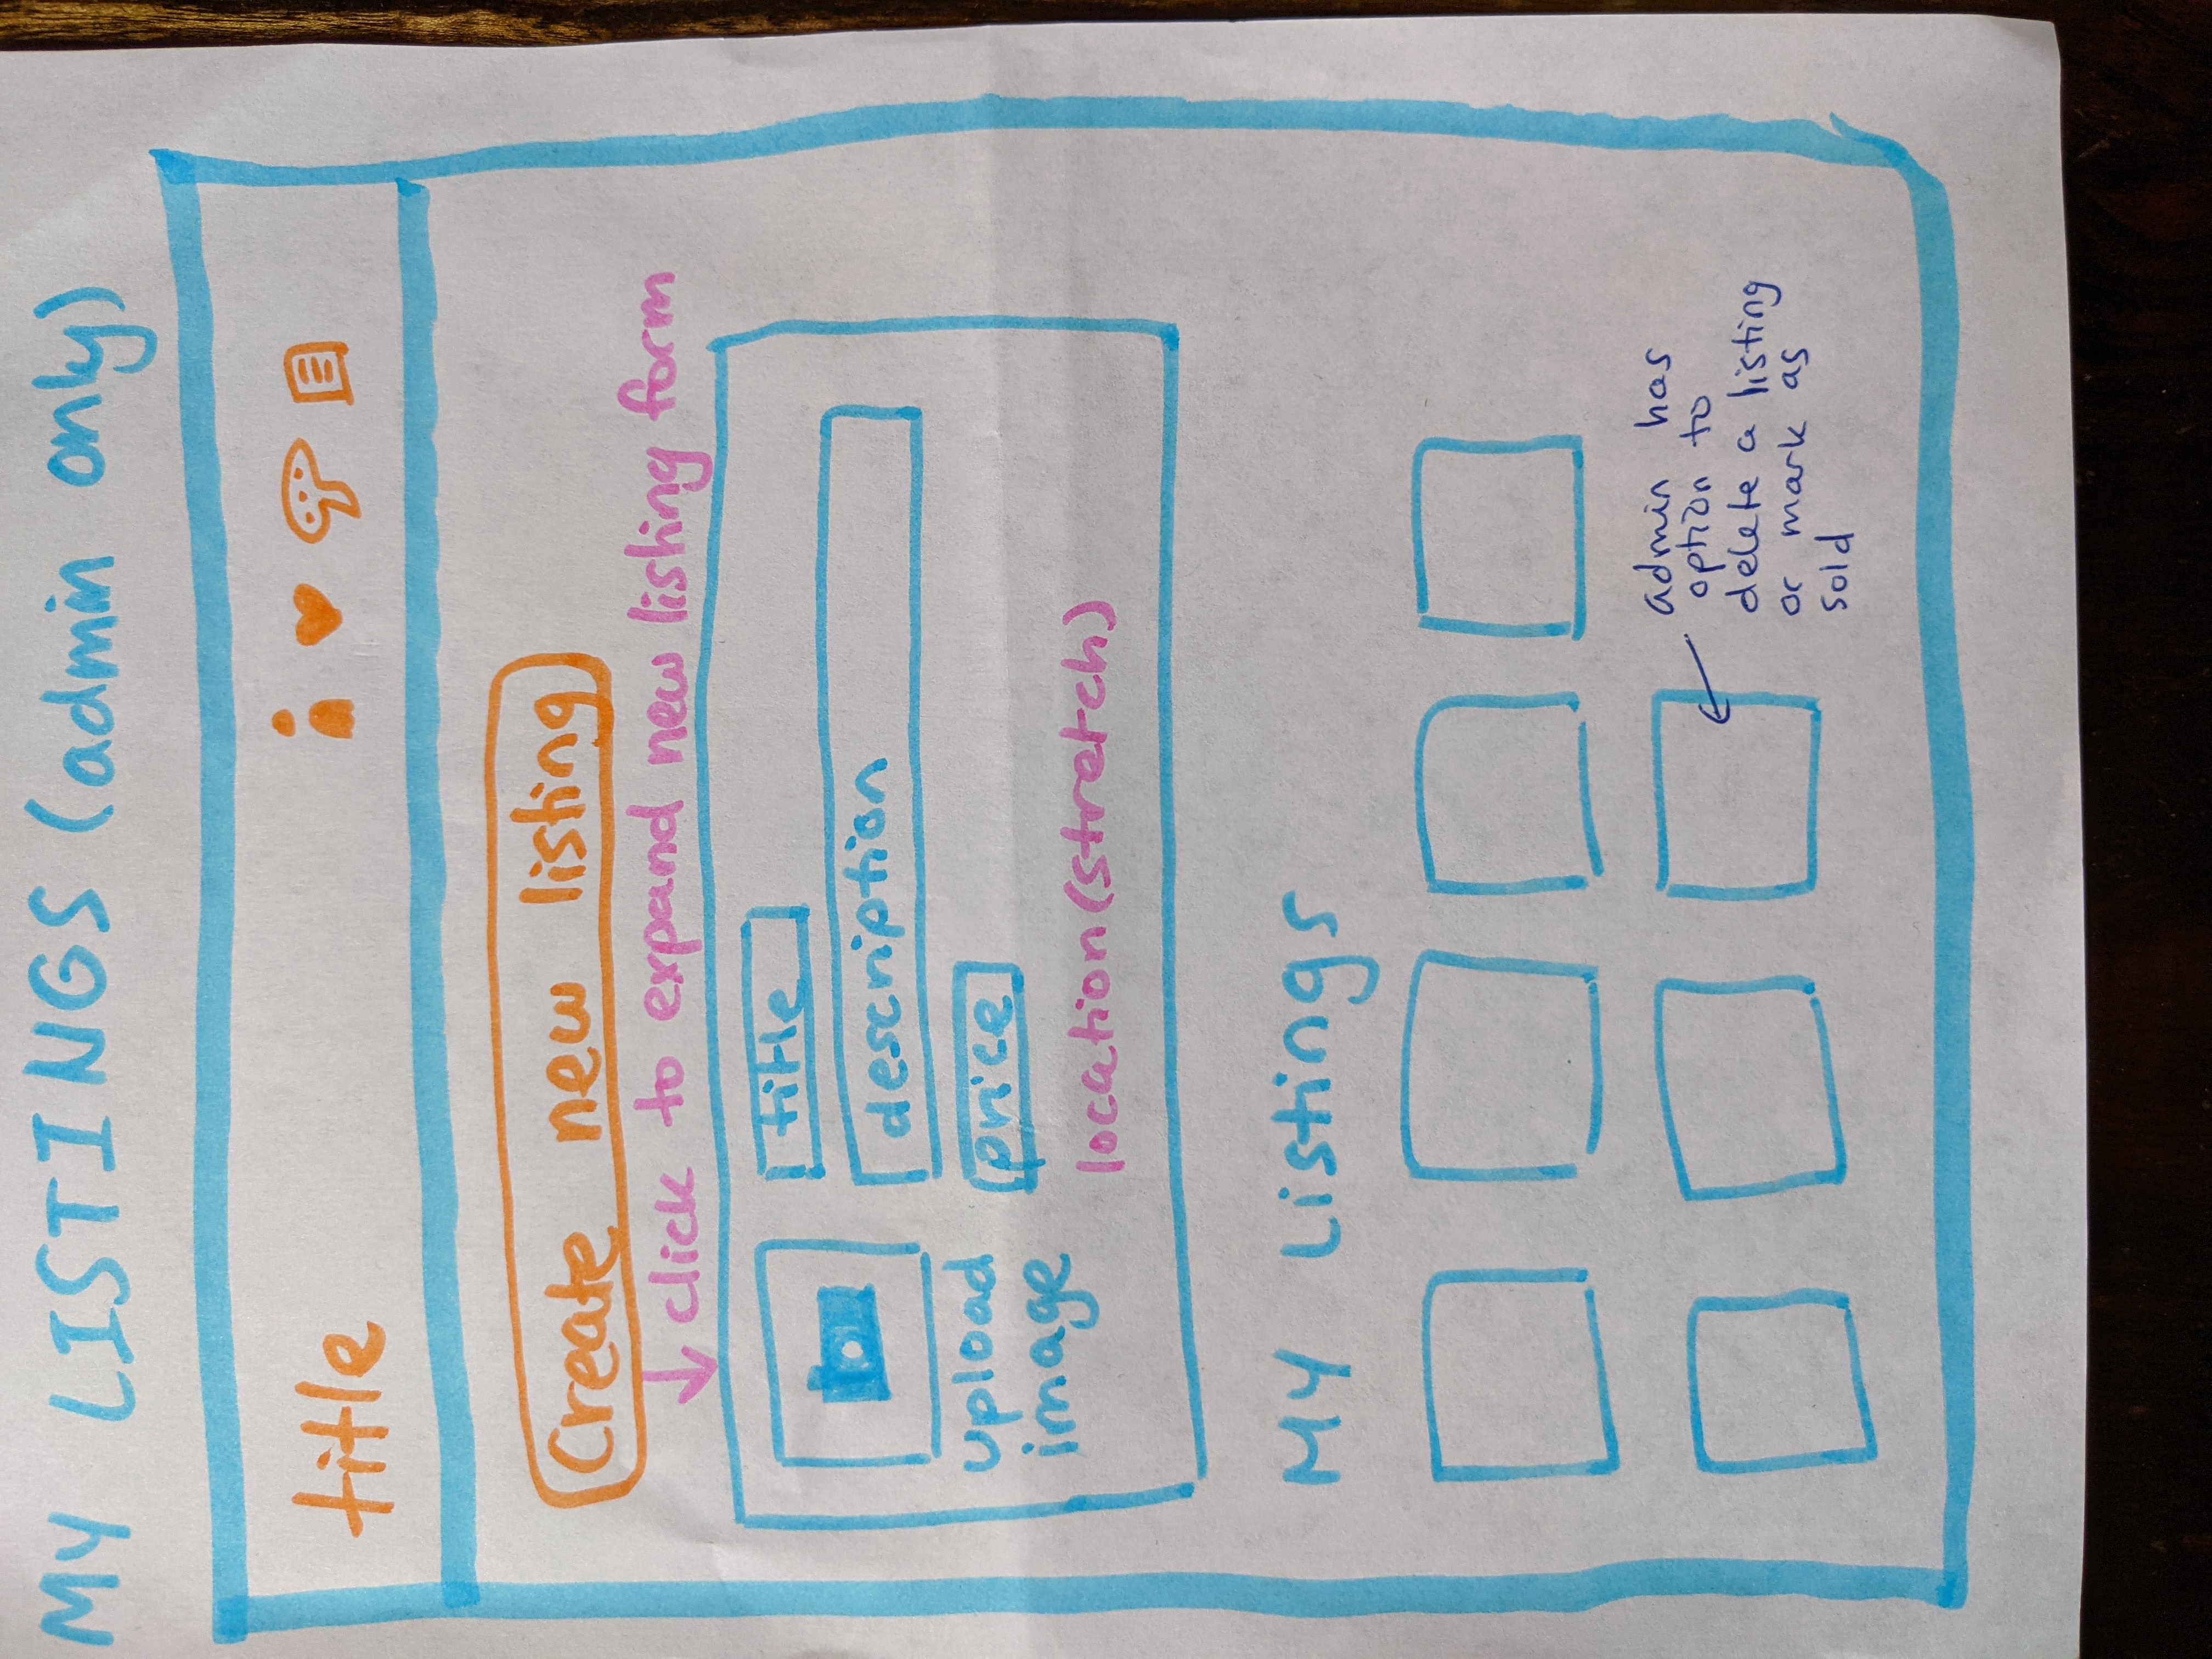 MY LISTINGS (admin only)
title
Create new listing
click to expand new listing form
title
description
upload
image
price
location (stretch)
My Listings
admin has
option to
delete a listing
or mark as
sold